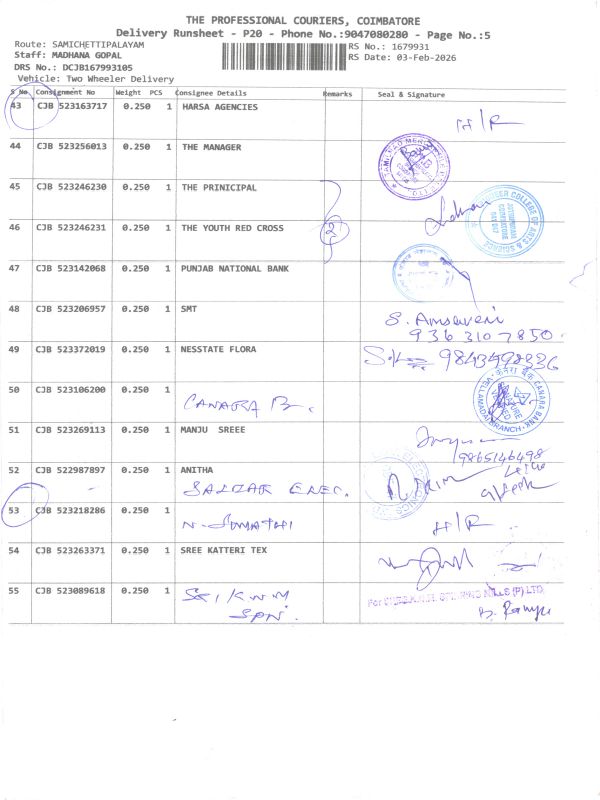 THE PROFESSIONAL COURIERS, COIMBATORE
Delivery Runsheet - P20 - Phone No.:9047080280 - Page No.:5
Route: SAMICHETTIPALAYAM RS No.: 1679931
Staff: MADHANA GOPAL RS Date: 03-Feb-2026
DRS No.: DCJB167993105
Vehicle: Two Wheeler Delivery
S No. Consignment No Weight PCS Consignee Details Remarks Seal & Signature
43 CJB 523163717 0.250 1 HARSA AGENCIES H/R
44 CJB 523256013 0.250 1 THE MANAGER
45 CJB 523246230 0.250 1 THE PRINICIPAL
46 CJB 523246231 0.250 1 THE YOUTH RED CROSS 2
47 CJB 523142068 0.250 1 PUNJAB NATIONAL BANK
48 CJB 523206957 0.250 1 SMT S. Amsaveni
936 3107850.
49 CJB 523372019 0.250 1 NESSTATE FLORA 9843498336
50 CJB 523106200 0.250 1 CANARA B. केनरा बैंक CANARA BANK VELLAMADAI BRANCH
51 CJB 523269113 0.250 1 MANJU SREEE
9865146498
52 CJB 522987897 0.250 1 ANITHA
SALZAR ELEC.
53 CJB 523218286 0.250 1 N. SUMATHI H/R
54 CJB 523263371 0.250 1 SREE KATTERI TEX
55 CJB 523089618 0.250 1 For MILLS (P) LTD
SPN.